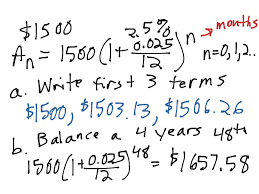 $1500 2.5% → months
Aₙ = 1500(1 + 0.025/12)ⁿ n=0,1,2..
a. Write first 3 terms
$1500, $1503.13, $1506.26
b. Balance a 4 years 48th
1500(1 + 0.025/12)⁴⁸ = $1657.58